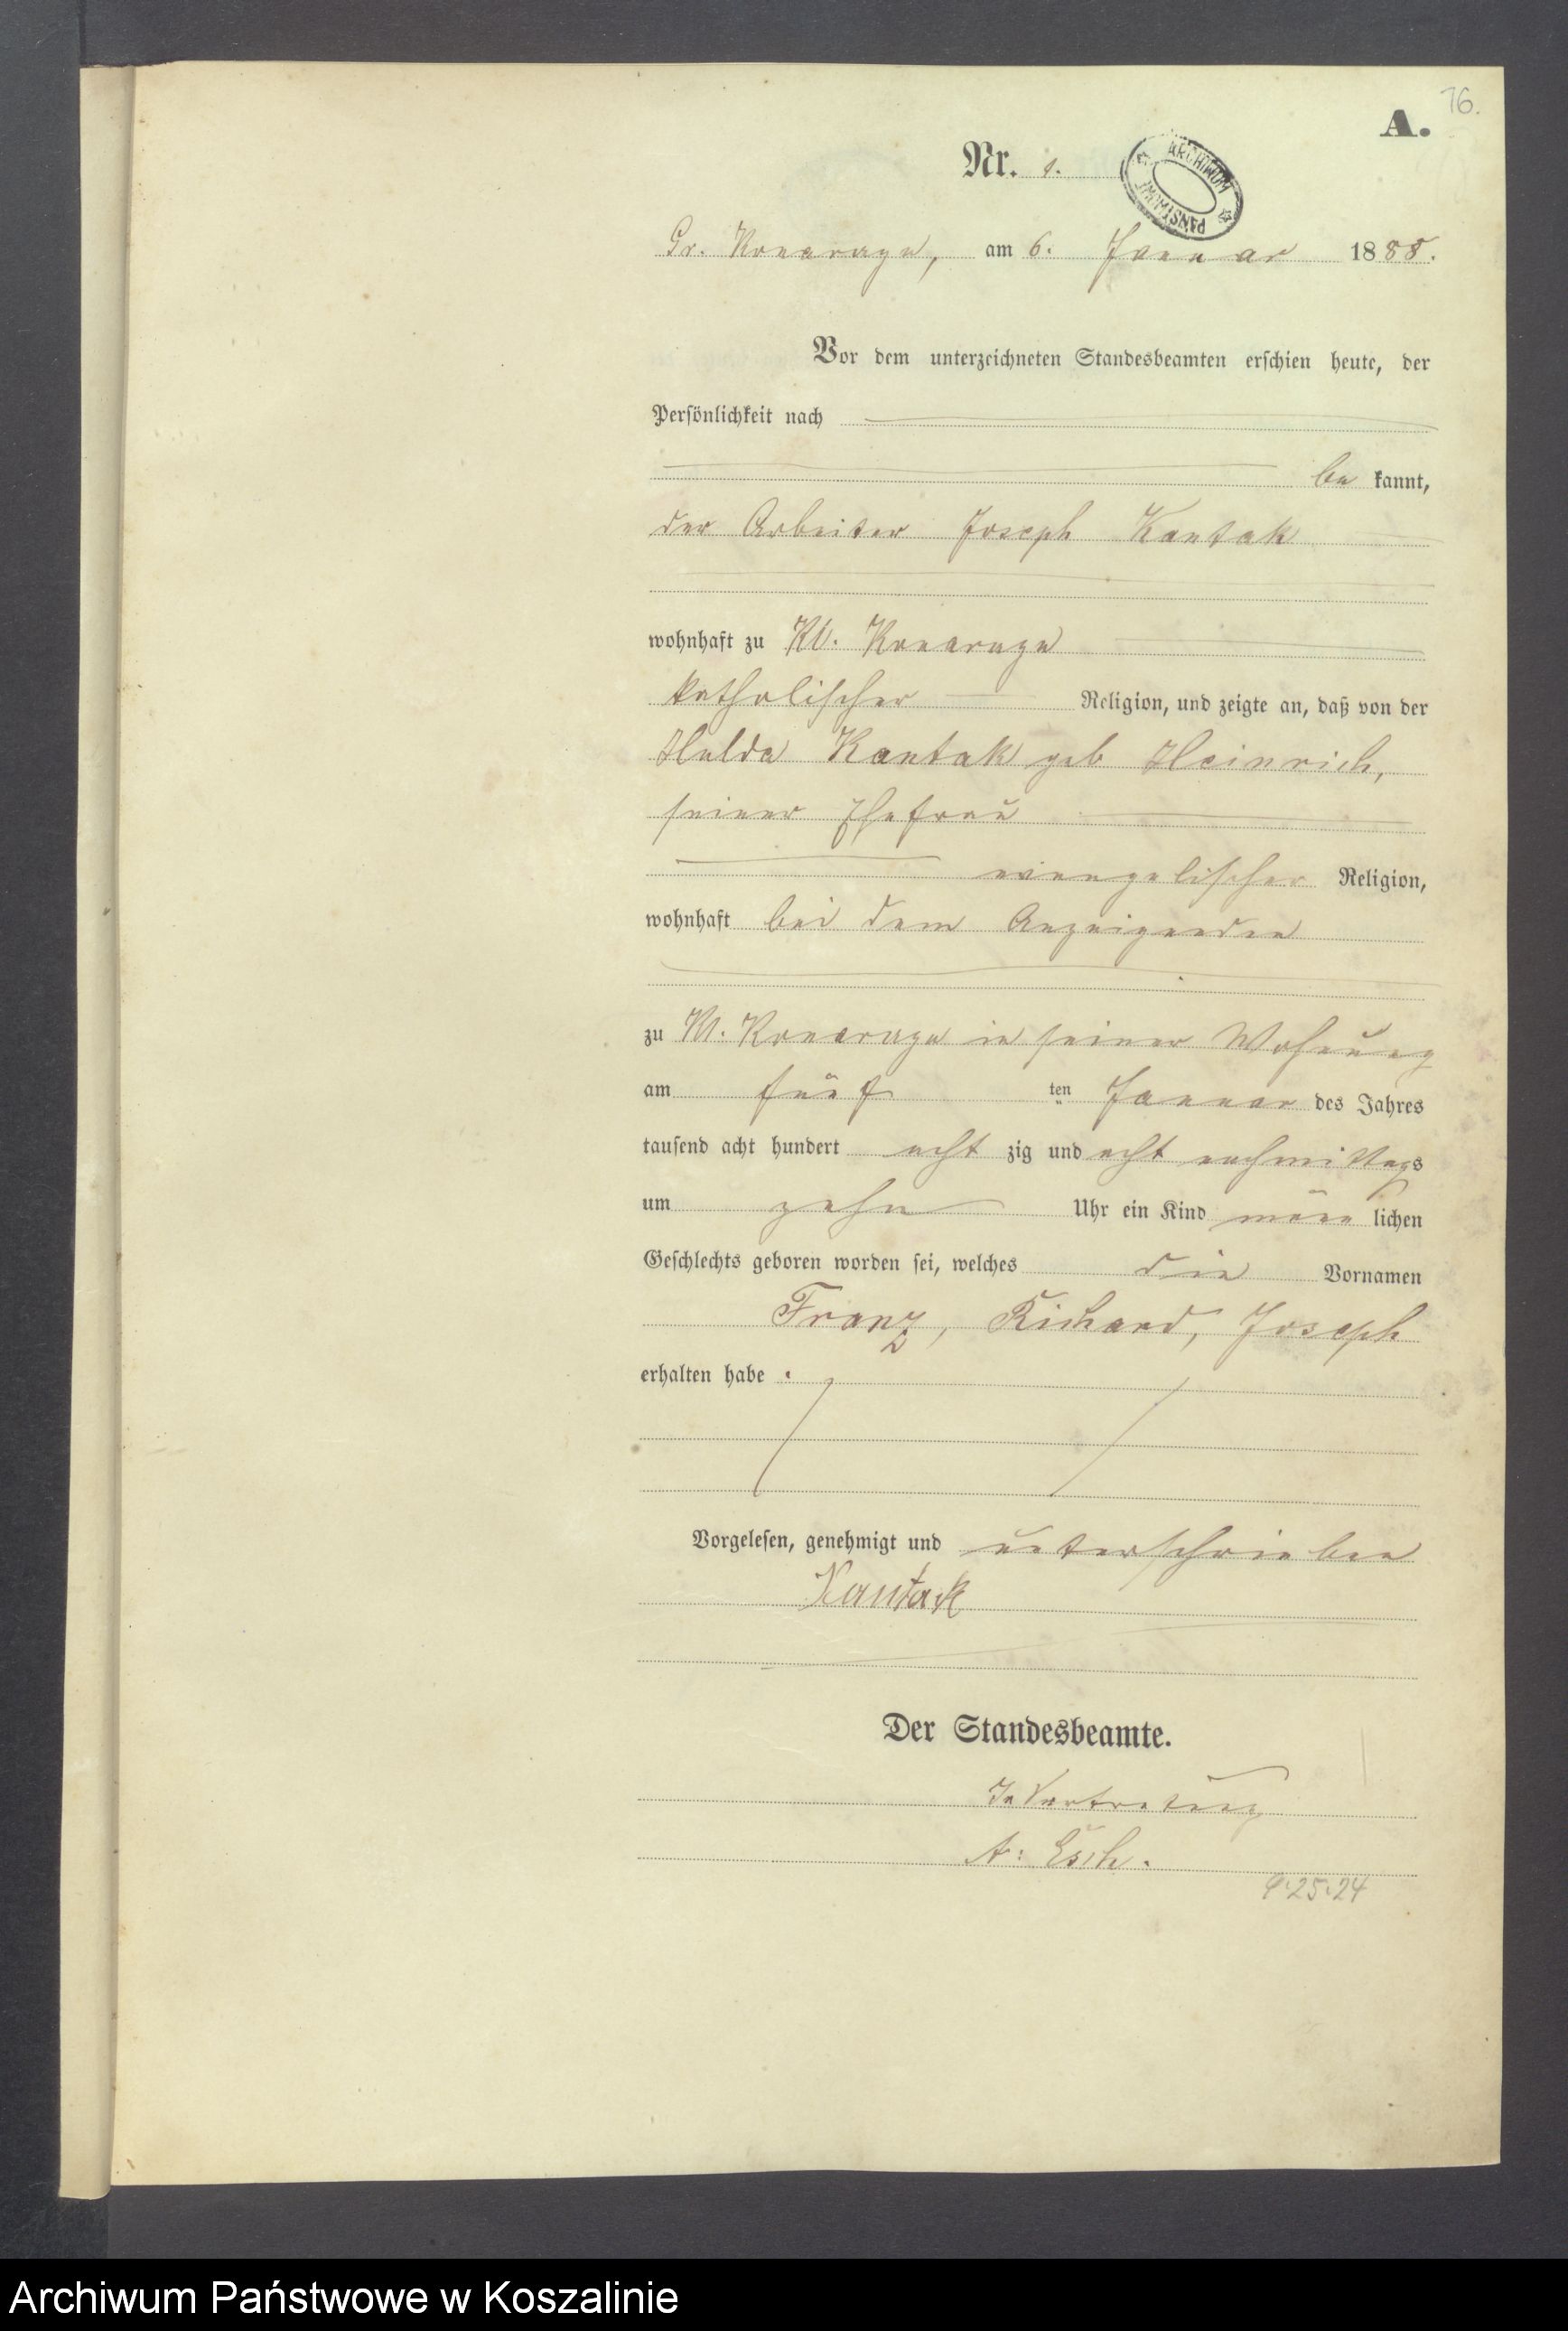 76.
A.
Nr. 1.
ARCHIWUM PAŃSTWOWE
Gr. Konarzyn, am 6. Januar 1888.
Vor dem unterzeichneten Standesbeamten erschien heute, der
Persönlichkeit nach
be kannt,
der Arbeiter Joseph Kantak
wohnhaft zu Kl. Konarzyn
katholischer Religion, und zeigte an, daß von der
Hulda Kantak geb Heinrich,
seiner Ehefrau
evangelischer Religion,
wohnhaft bei dem Anzeigenden
zu Kl. Konarzyn in seiner Wohnung
am fünf ten Januar des Jahres
tausend acht hundert acht zig und acht nachmittags
um zehn Uhr ein Kind männ lichen
Geschlechts geboren worden sei, welches die Vornamen
Franz, Richard, Joseph
erhalten habe.
Vorgelesen, genehmigt und unterschrieben
Kantak
Der Standesbeamte.
In Vertretung
A: Esch.
9.25.24
Archiwum Państwowe w Koszalinie